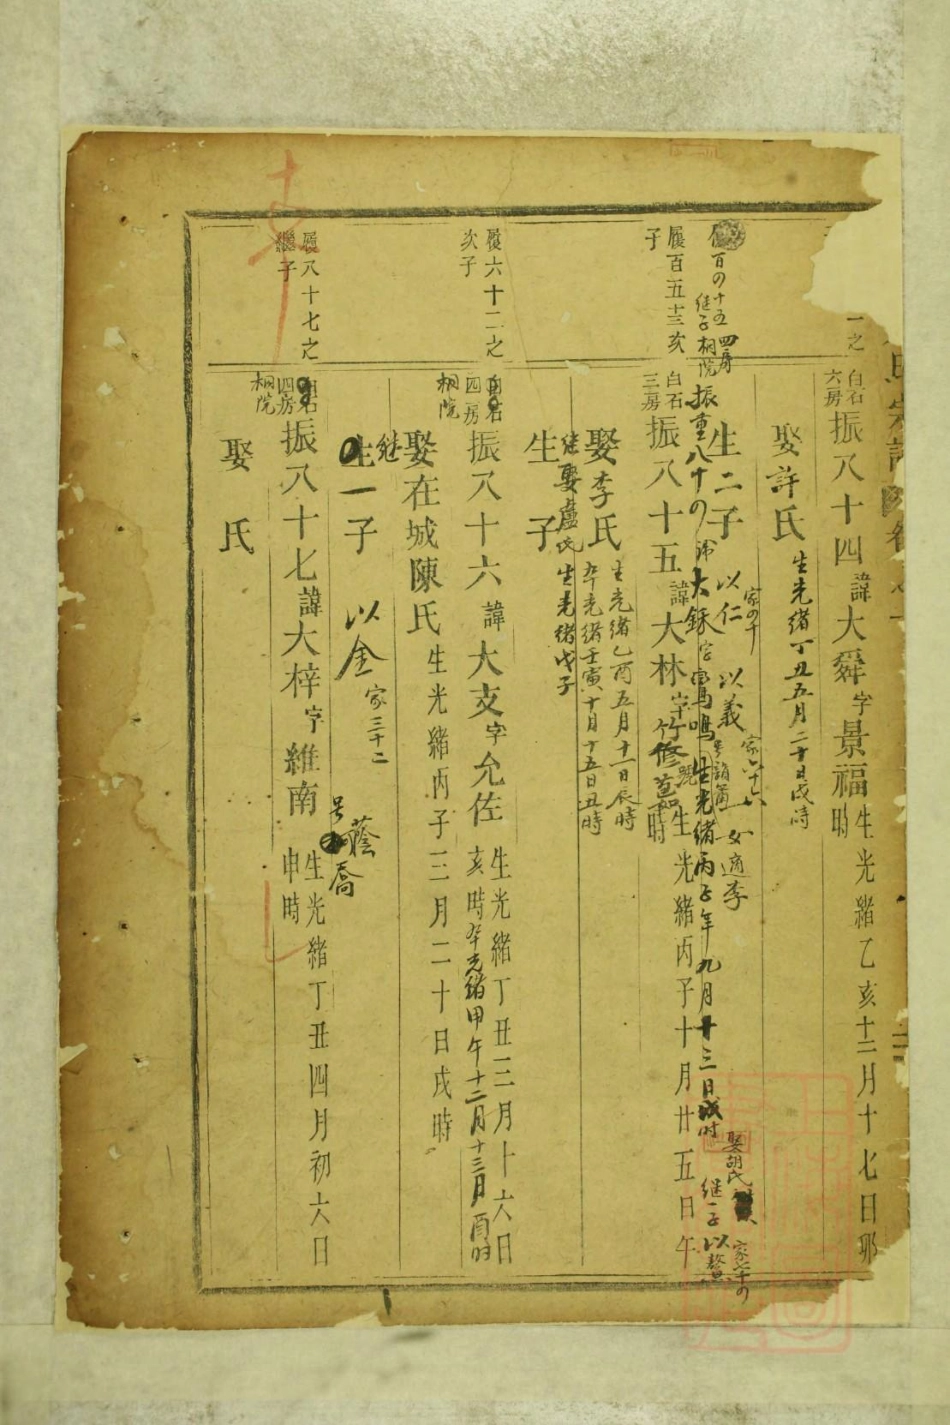 一之
白石
六房
振八十四諱大舜字景福
生光緒乙亥十二月十七日卯
時
娶許氏
生光緒丁丑五月二十日戌時
生二子
以仁
家四十
以義
一女適李
百四十五
継子
四房
桐院
振重八十四
諱大
字
鳴
生光緒丙子年九月十三日戌时
娶胡氏
継一子以
履百五十三次
子
白石
三房
振八十五諱大林字竹修
號
生光緒丙子十月廿五日午
時
娶李氏
生光緒乙酉五月十一日辰時
卒光緒壬寅十月十五日丑時
継娶盧氏生光緒戊子
生子
履六十二之
次子
四房
桐院
振八十六諱大支字允佐
生光緒丁丑三月十六日
亥時卒光緒甲午十二月十三日酉时
娶在城陳氏
生光緒丙子三月二十日戌時
継
一子
以金
家三十二
履八十七之
継子
四房
桐院
振八十七諱大梓字維南
号
蔭喬
生光緒丁丑四月初六日
申時
娶氏